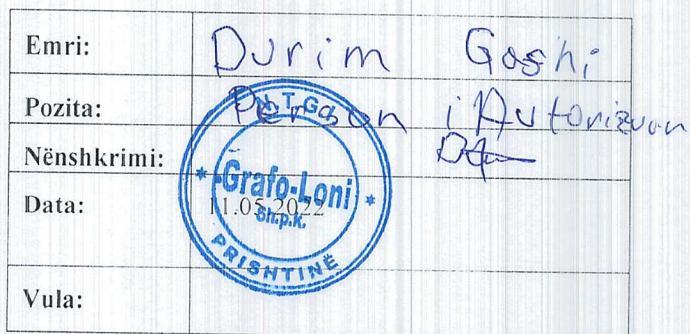 Emri: Durim Gashi
Pozita: Person i Autorizuar
Nënshkrimi:
Data: 11.05.2022
Vula:
N.T.G.
Grafo-Loni
Sh.p.k.
PRISHTINË